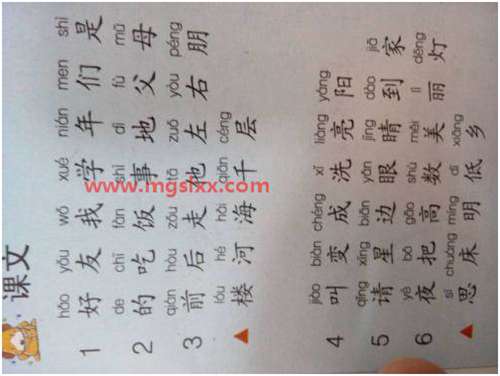 课文
hǎo yǒu wǒ xué nián men shì
1 好 友 我 学 年 们 是
de chī fàn shì dì fù mǔ
2 的 吃 饭 事 地 父 母
qián hòu zǒu tā zuǒ yòu péng
3 前 后 走 他 左 右 朋
lóu hé hǎi qiān céng
▲ 楼 河 海 千 层
jiào biàn chéng xǐ liàng yáng
4 叫 变 成 洗 亮 阳
qǐng xīng biān yǎn jīng dào jiā
5 请 星 边 眼 睛 到 家
yè bǎ gāo shǔ měi lì dēng
6 夜 把 高 数 美 丽 灯
sī chuáng míng dī xiāng
▲ 思 床 明 低 乡